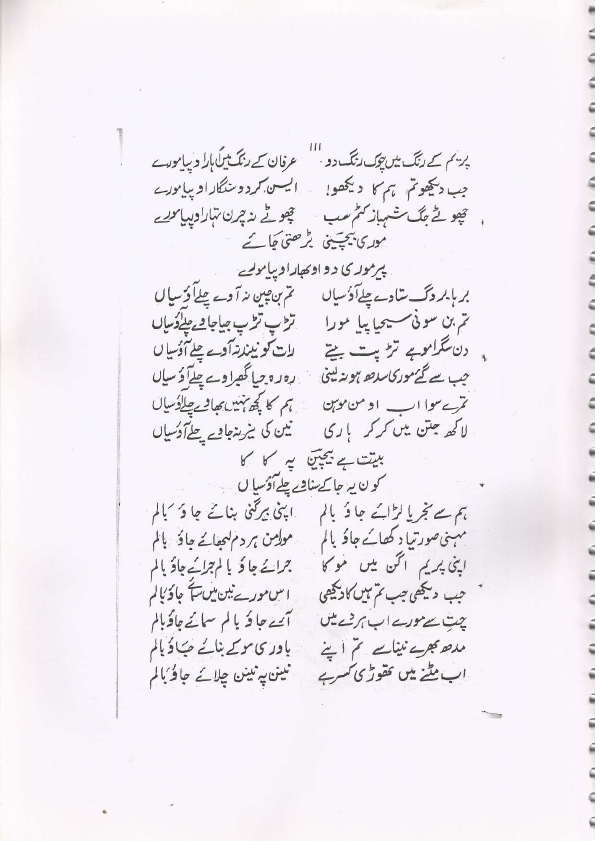 پریم کے رنگ میں چوک رنگ دو ااا عرفان کے رنگ میں ہارا و پیا مورے
جب دیکھو تم ہم کا دیکھو! ایسن کردو سنگار او پیا مورے
چھوٹے جگ شہباز کٹم سب چھوٹے نہ چرن تہار او پیا مورے
موری بیچینی بڑھتی جائے
پیر موری دو او بھار او پیا مورے
برہا بروگ ستاوے چلے آؤ سیاں تم بن چین نہ آوے چلے آؤ سیاں
تم بن سونی سیجیا پیا مورا تڑپ تڑپ جیا جاوے چلے آؤ سیاں
دن سگرا موہے تڑپت بیتے رات کو نیند نہ آوے چلے آؤ سیاں
جب سے گئے موری سدھ ہو نہ لینی رہ رہ جیا گھبراوے چلے آؤ سیاں
تمرے سوا اب او من موہن ہم کا کچھ نہیں بھاوے چلے آؤ سیاں
لاکھ جتن میں کر کر ہاری نین کی نیر نہ جاوے چلے آؤ سیاں
بیتت ہے بیچین پہ کا کا
کون یہ جا کے سناوے چلے آؤ سیاں
ہم سے نجریا لڑائے جاؤ بالم اپنی بیرگنی بنائے جاؤ بالم
مہنی صورتیا دکھائے جاؤ بالم مورا من ہر دم لبھائے جاؤ بالم
اپنی پریم اگن میں موکا جرائے جاؤ بالم جرائے جاؤ بالم
جب دیکھی جب تم ہیں کا دیکھی اس مورے نین میں سمائے جاؤ بالم
چت سے مورے اب ہردے میں آئے جاؤ بالم سمائے جاؤ بالم
مدھ بھرے نینا سے تم اپنے باوری موکے بنائے جاؤ بالم
اب مٹنے میں تھوڑی کسر ہے نینن پہ نینن چلائے جاؤ بالم